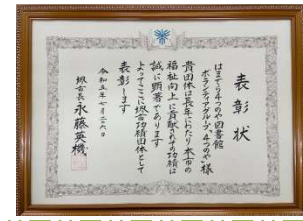 表彰状
はまでら4つのや図書館
ボランティアグループ、4つのや、様
貴団体は長年にわたり本市の
福祉向上に貢献されその功績は
誠に顕著であります
よってここに堺市功績団体として
表彰します
令和五年七月二六日
堺市長永藤英機